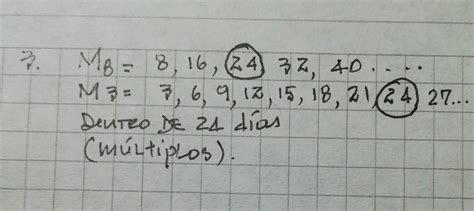 7. M8 = 8, 16, 24 32, 40....
M3 = 3, 6, 9, 12, 15, 18, 21, 24 27...
DENTRO DE 24 días
(múltiplos).